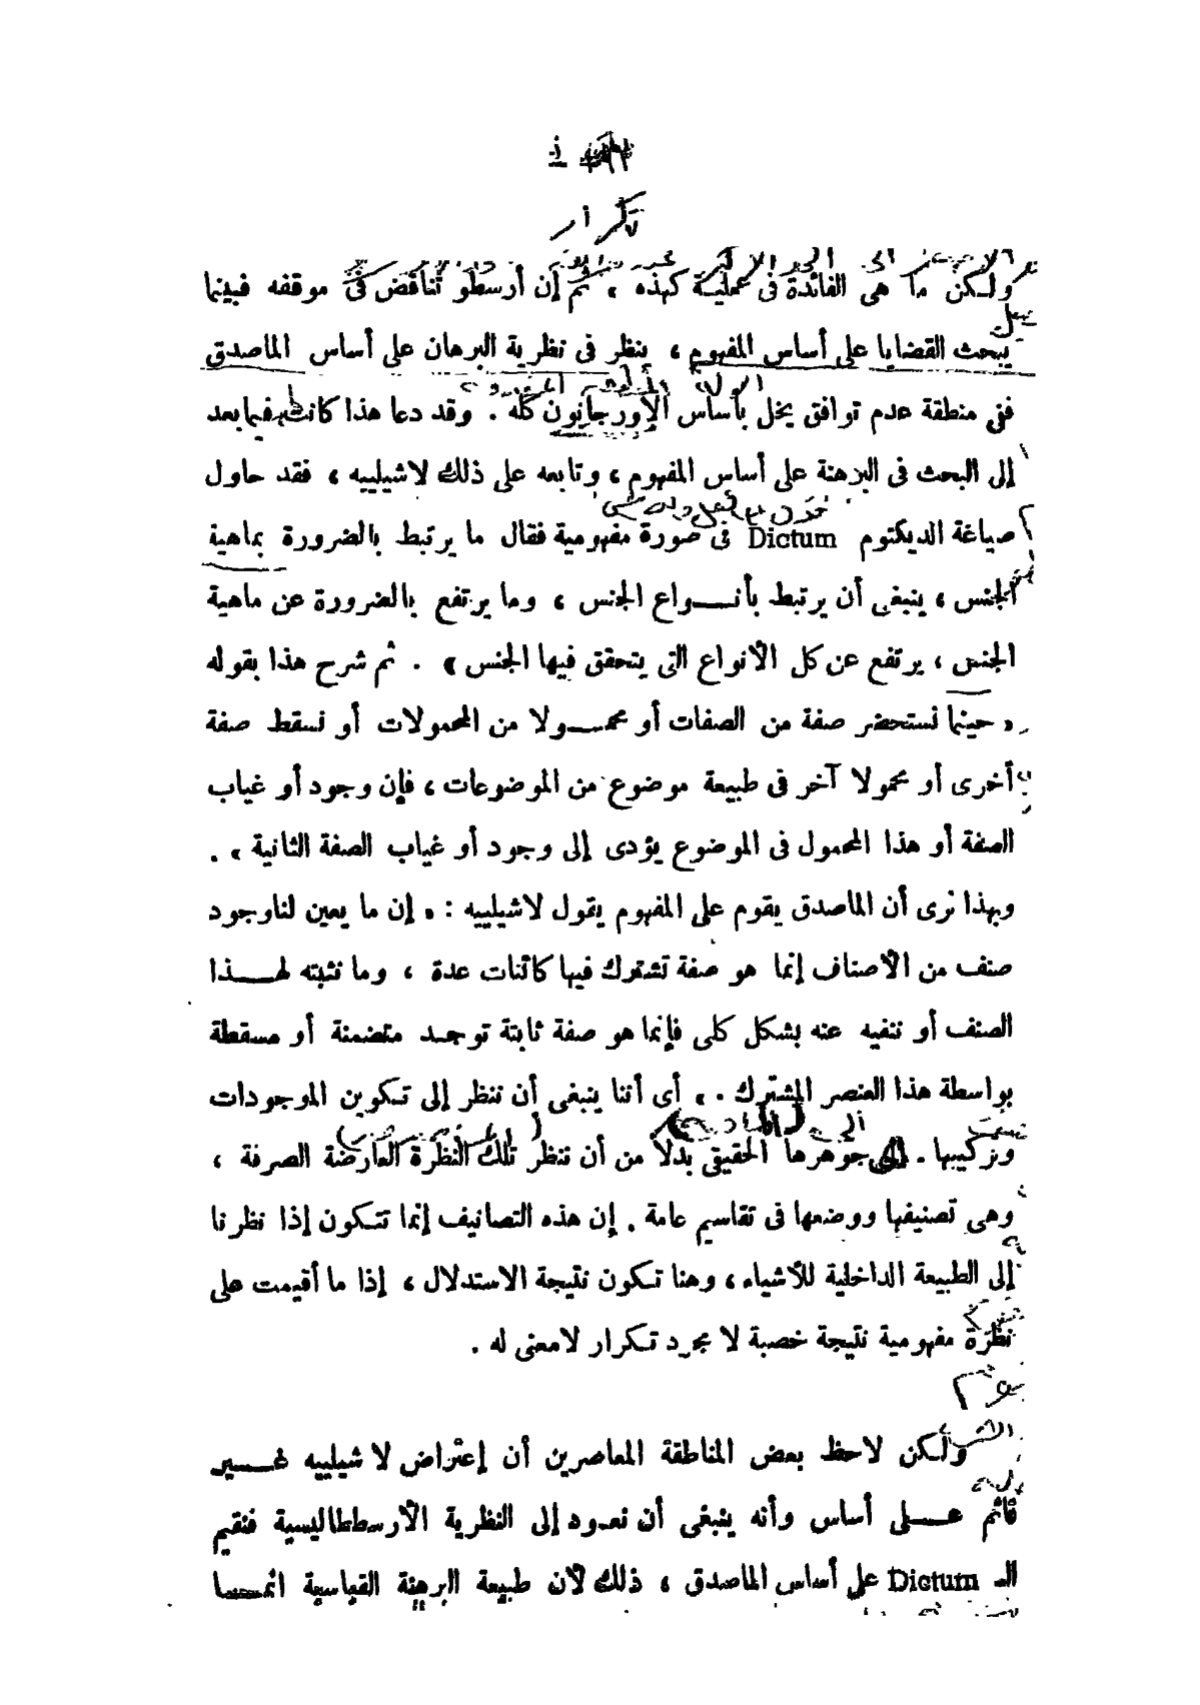 تكرار
ولكن ما هى الفائدة فى عملية كهذه ، ثم إن أرسطو تناقض فى موقفه فبينما
يبحث القضايا على أساس المفهوم ، ينظر فى نظرية البرهان على أساس الماصدق
ففى منطقة عدم توافق يخل بأساس الأورجانون كله . وقد دعا هذا كانت فيما بعد
إلى البحث فى البرهنة على أساس المفهوم ، وتابعه على ذلك لاشيلييه ، فقد حاول
صياغة الديكتوم Dictum فى صورة مفهومية فقال ما يرتبط بالضرورة بماهية
الجنس ، ينبغى أن يرتبط بأنـــواع الجنس ، وما يرتفع بالضرورة عن ماهية
الجنس ، يرتفع عن كل الأنواع التى يتحقق فيها الجنس » . ثم شرح هذا بقوله
« حينما نستحضر صفة من الصفات أو محمـــولا من المحمولات أو نسقط صفة
أخرى أو محمولا آخر فى طبيعة موضوع من الموضوعات ، فإن وجود أو غياب
الصفة أو هذا المحمول فى الموضوع يؤدى إلى وجود أو غياب الصفة الثانية » .
وبهذا نرى أن الماصدق يقوم على المفهوم يقول لاشيلييه : « إن ما يعين لنا وجود
صنف من الأصناف إنما هو صفة تشترك فيها كائنات عدة ، وما نثبته لهـــذا
الصنف أو ننفيه عنه بشكل كلى فإنما هو صفة ثابتة توجـد متضمنة أو مسقطة
بواسطة هذا العنصر المشترك . » أى أننا ينبغى أن ننظر إلى تـكوين الموجودات
وتركيبها . إلى جوهرها الحقيقى بدلا من أن ننظر تلك النظرة العارضة الصرفة ،
وهى تصنيفها ووضعها فى تقاسيم عامة . إن هذه التصانيف إنما تتـكون إذا نظرنا
إلى الطبيعة الداخلية للأشياء ، وهنا تـكون نتيجة الاستدلال ، إذا ما أقيمت على
نظرة مفهومية نتيجة خصبة لا مجرد تـكرار لا معنى له .
ولكن لاحظ بعض المناطقة المعاصرين أن إعتراض لاشيلييه غـــير
قائم عـــلى أساس وأنه ينبغى أن نعـود إلى النظرية الأرسططاليسية فنقيم
الـ Dictum على أساس الماصدق ، ذلك لأن طبيعة البرهنة القياسية انمـــا